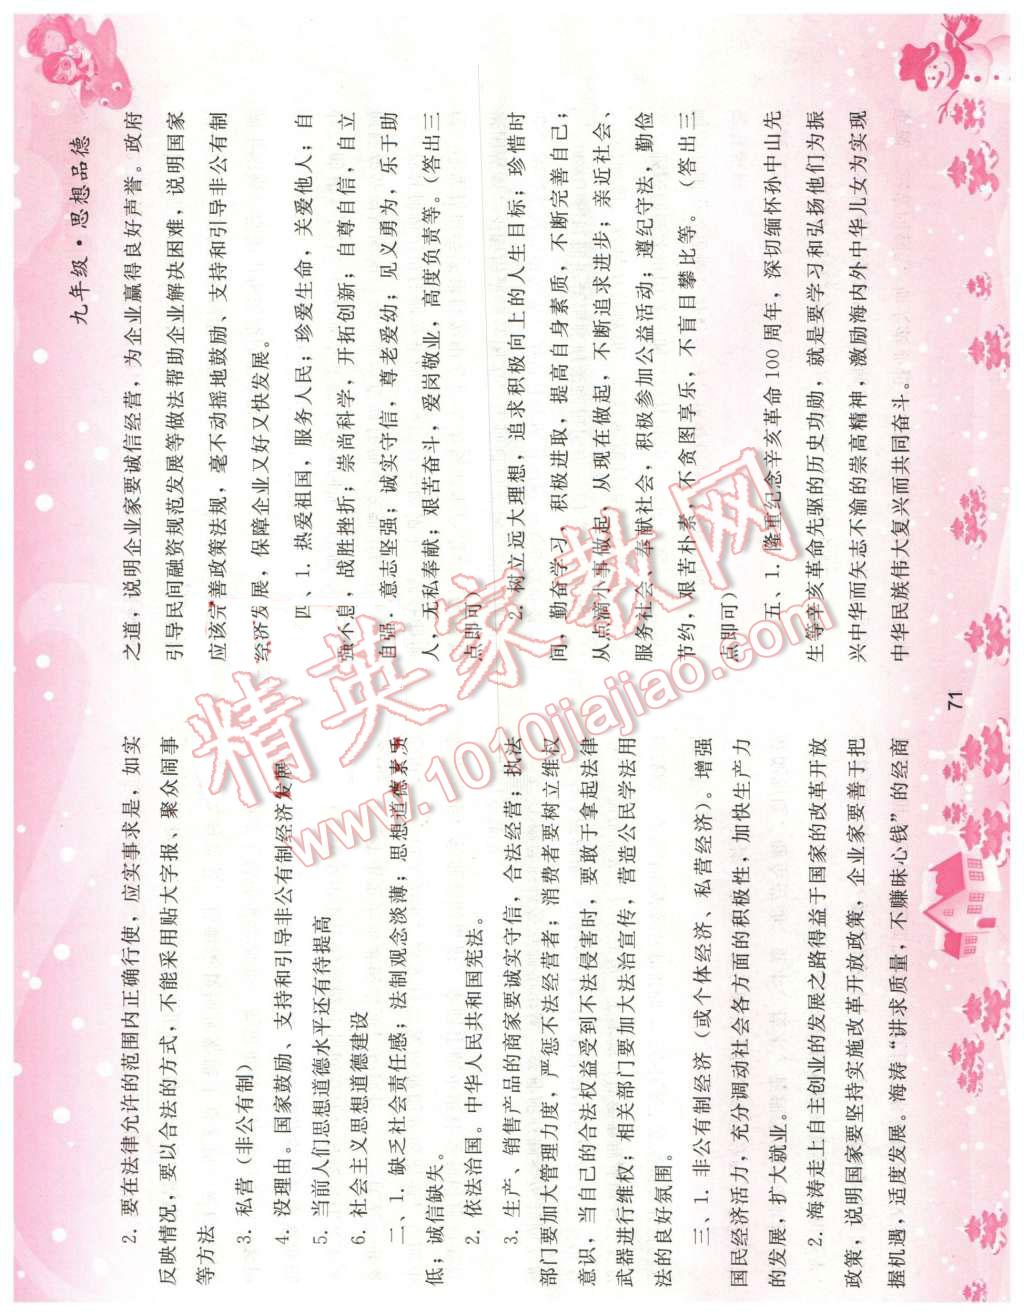 九年级·思想品德
2. 要在法律允许的范围内正确行使，应实事求是，如实
反映情况，要以合法的方式，不能采用贴大字报、聚众闹事
等方法
3. 私营（非公有制）
4. 没理由。国家鼓励、支持和引导非公有制经济发展
5. 当前人们思想道德水平还有待提高
6. 社会主义思想道德建设
二、1. 缺乏社会责任感；法制观念淡薄；思想道德素质
低；诚信缺失。
2. 依法治国。中华人民共和国宪法。
3. 生产、销售产品的商家要诚实守信，合法经营；执法
部门要加大管理力度，严惩不法经营者；消费者要树立维权
意识，当自己的合法权益受到不法侵害时，要敢于拿起法律
武器进行维权；相关部门要加大法治宣传，营造公民学法用
法的良好氛围。
三、1. 非公有制经济（或个体经济、私营经济）。增强
国民经济活力，充分调动社会各方面的积极性，加快生产力
的发展，扩大就业。
2. 海涛走上自主创业的发展之路得益于国家的改革开放
政策，说明国家要坚持实施改革开放政策，企业家要善于把
握机遇，适度发展。海涛“讲求质量，不赚昧心钱”的经商
之道，说明企业家要诚信经营，为企业赢得良好声誉。政府
引导民间融资规范发展等做法帮助企业解决困难，说明国家
应该完善政策法规，毫不动摇地鼓励、支持和引导非公有制
经济发展，保障企业又好又快发展。
四、1. 热爱祖国，服务人民；珍爱生命，关爱他人；自
强不息，战胜挫折；崇尚科学，开拓创新；自尊自信，自立
自强，意志坚强；诚实守信，尊老爱幼；见义勇为，乐于助
人，无私奉献；艰苦奋斗，爱岗敬业，高度负责等。（答出三
点即可）
2. 树立远大理想，追求积极向上的人生目标；珍惜时
间，勤奋学习，积极进取，提高自身素质，不断完善自己；
从点滴小事做起，从现在做起，不断追求进步；亲近社会、
服务社会、奉献社会，积极参加公益活动；遵纪守法，勤俭
节约，艰苦朴素，不贪图享乐，不盲目攀比等。（答出三
点即可）
五、1. 隆重纪念辛亥革命 100 周年，深切缅怀孙中山先
生等辛亥革命先驱的历史功勋，就是要学习和弘扬他们为振
兴中华而矢志不渝的崇高精神，激励海内外中华儿女为实现
中华民族伟大复兴而共同奋斗。
71
精英家教网
www.1010jiajiao.com